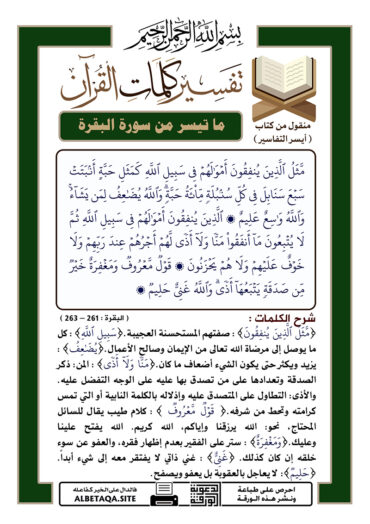 بسم الله الرحمن الرحيم
تفسير كلمات القرآن
ما تيسر من سورة البقرة
منقول من كتاب
( أيسر التفاسير )
مَّثَلُ ٱلَّذِينَ يُنفِقُونَ أَمْوَٰلَهُمْ فِى سَبِيلِ ٱللَّهِ كَمَثَلِ حَبَّةٍ أَنۢبَتَتْ
سَبْعَ سَنَابِلَ فِى كُلِّ سُنۢبُلَةٍ مِّا۟ئَةُ حَبَّةٍ وَٱللَّهُ يُضَٰعِفُ لِمَن يَشَآءُ
وَٱللَّهُ وَٰسِعٌ عَلِيمٌ ۞ ٱلَّذِينَ يُنفِقُونَ أَمْوَٰلَهُمْ فِى سَبِيلِ ٱللَّهِ ثُمَّ
لَا يُتْبِعُونَ مَآ أَنفَقُوا۟ مَنًّا وَلَآ أَذًى لَّهُمْ أَجْرُهُمْ عِندَ رَبِّهِمْ وَلَا
خَوْفٌ عَلَيْهِمْ وَلَا هُمْ يَحْزَنُونَ ۞ قَوْلٌ مَّعْرُوفٌ وَمَغْفِرَةٌ خَيْرٌ
مِّن صَدَقَةٍ يَتْبَعُهَآ أَذًى وَٱللَّهُ غَنِىٌّ حَلِيمٌ ۞
شرح الكلمات : ( البقرة : 261 – 263 )
﴿مَّثَلُ ٱلَّذِينَ يُنفِقُونَ﴾ : صفتهم المستحسنة العجيبة. ﴿سَبِيلِ ٱللَّهِ﴾ : كل
ما يوصل إلى مرضاة الله تعالى من الإيمان وصالح الأعمال. ﴿يُضَٰعِفُ﴾ :
يزيد ويكثر حتى يكون الشيء أضعاف ما كان. ﴿مَنًّا وَلَآ أَذًى﴾ : المن: ذكر
الصدقة وتعدادها على من تصدق بها عليه على الوجه التفضل عليه.
والأذى: التطاول على المتصدق عليه وإذلاله بالكلمة النابية أو التي تمس
كرامته وتحط من شرفه. ﴿ قَوْلٌ مَّعْرُوفٌ ﴾ : كلام طيب يقال للسائل
المحتاج، نحو: الله يرزقنا وإياكم، الله كريم. الله يفتح علينا
وعليك. ﴿وَمَغْفِرَةٌ﴾ : ستر على الفقير بعدم إظهار فقره، والعفو عن سوء
خلقه إن كان كذلك. ﴿غَنِىٌّ﴾ : غني ذاتي لا يفتقر معه إلى شيء أبداً.
﴿حَلِيمٌ﴾ : لا يعاجل بالعقوبة بل يعفو ويصفح.
احرص على طباعة
ونشر هذه الورقة
الدعوية
بالورقة
فالدال على الخير كفاعله
ALBETAQA.SITE